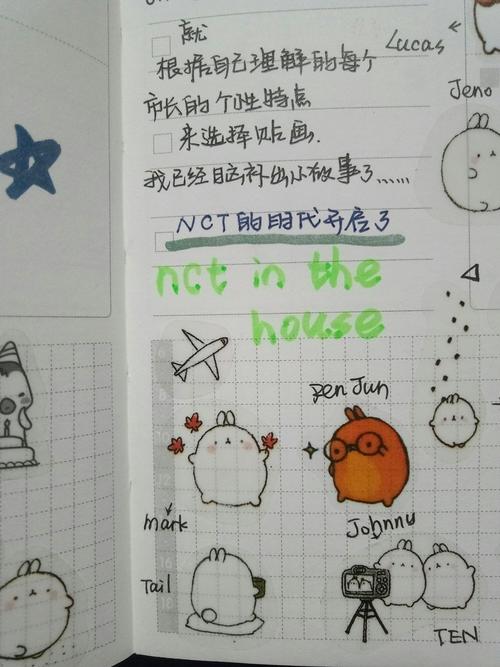 就
Lucas
根据自己理解的每个
市长的个性特点
Jeno
来选择贴画.
我已经自己脑补出小故事了......
NCT的时代开启了
nct in the
house
Ren Jun
mark
Johnny
Tail
TEN